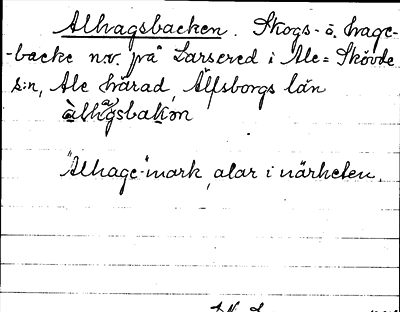 Alhagsbacken. Skogs- o. hage-
-backe n.v. på Larsered i Ale-Skövde
s:n, Ale härad, Älfsborgs län
àlhagsbakən
"Alhage"-mark, alar i närheten.